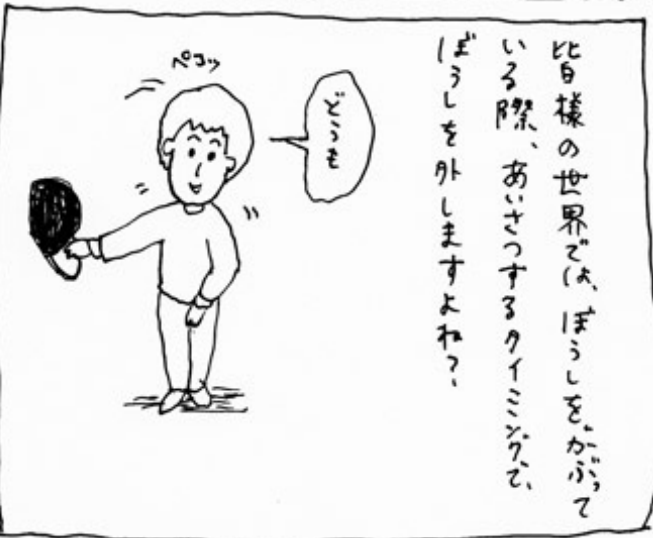 皆様の世界では、ぼうしをかぶって
いる際、あいさつするタイミングで、
ぼうしを外しますよね?
どうも
ペコッ